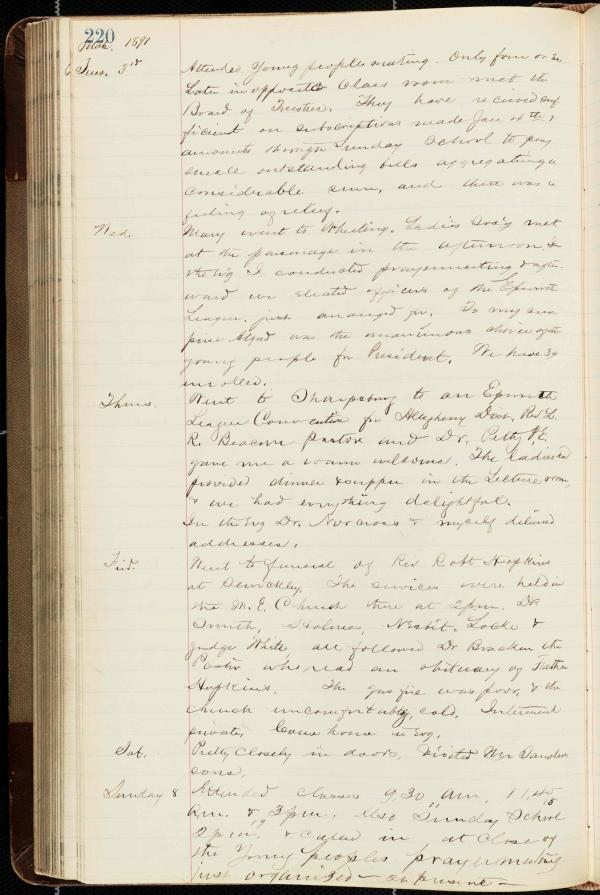 220
Mar. 1891
Tues. 3rd Attended Young peoples meeting. Only four or
Later in opposite Class room met the
Board of Trustees. They have recieved suf
ficient on subscriptions made Jan 4th &
amounts through Sunday School to pay
small outstanding bills aggregating a
considerable sum, and there was a
feeling of relief.
Wed. Mary went to Wheeling. Ladies Soc'y met
at the parsonage in the afternoon, In
the Ev'g I conducted prayermeeting & after-
ward we elected officers of the Epworth
League, just arranged for. To my sur
prise was the unanimous choice of the
young people for President. We have 39
enrolled.
Thurs. Went to Sharpsburg to an Epworth
League Convention for Allegheny Dist. Rev. L.
R. Beacom Pastor and Dr. Petty P.E.
gave me a warm welcome. The ladies had
provided dinner & supper in the Lecture room,
& we had everything delightful.
In the Ev'g Dr. Norcross & myself delivered
addresses.
Frid. Went to funeral of Rev Robt Hopkins
at Sewickley. The services were held in
the M. E. Church there at 2 pm. Dr
Smith, Holmes, Nesbit, Locke &
Judge White, all followed Dr Bracken the
Pastor who read an obituary of Father
Hopkins. The gas fire was poor, & the
church uncomfortably cold. Interment
private. Came home in Evg.
Sat. Pretty closely in doors. Visited Mr
sons.
Sunday 8 Attended classes 9.30 am, 11.45
a.m. & 3 pm. Also Sunday School
2 pm. & called in at close of
the Young peoples prayermeeting
just organized — present —